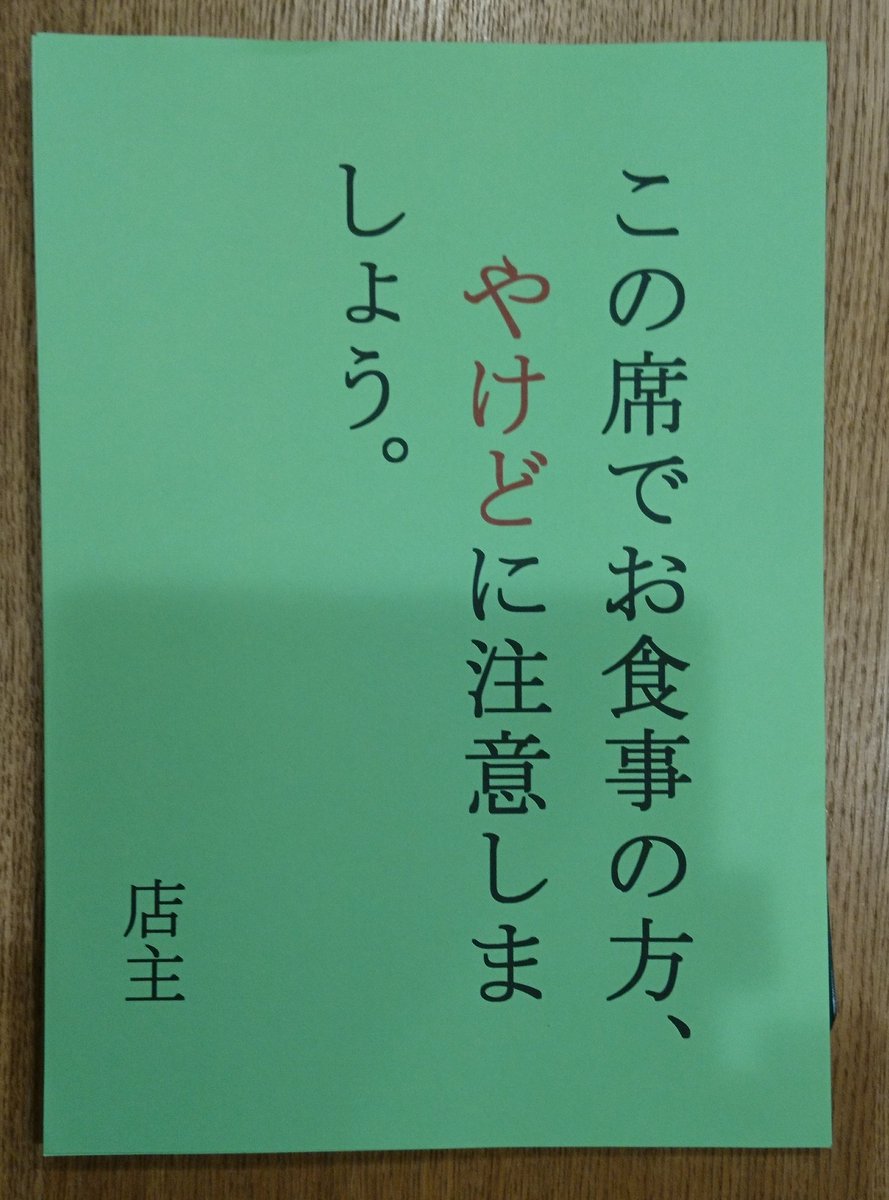 この席でお食事の方、
やけどに注意しま
しょう。
店主